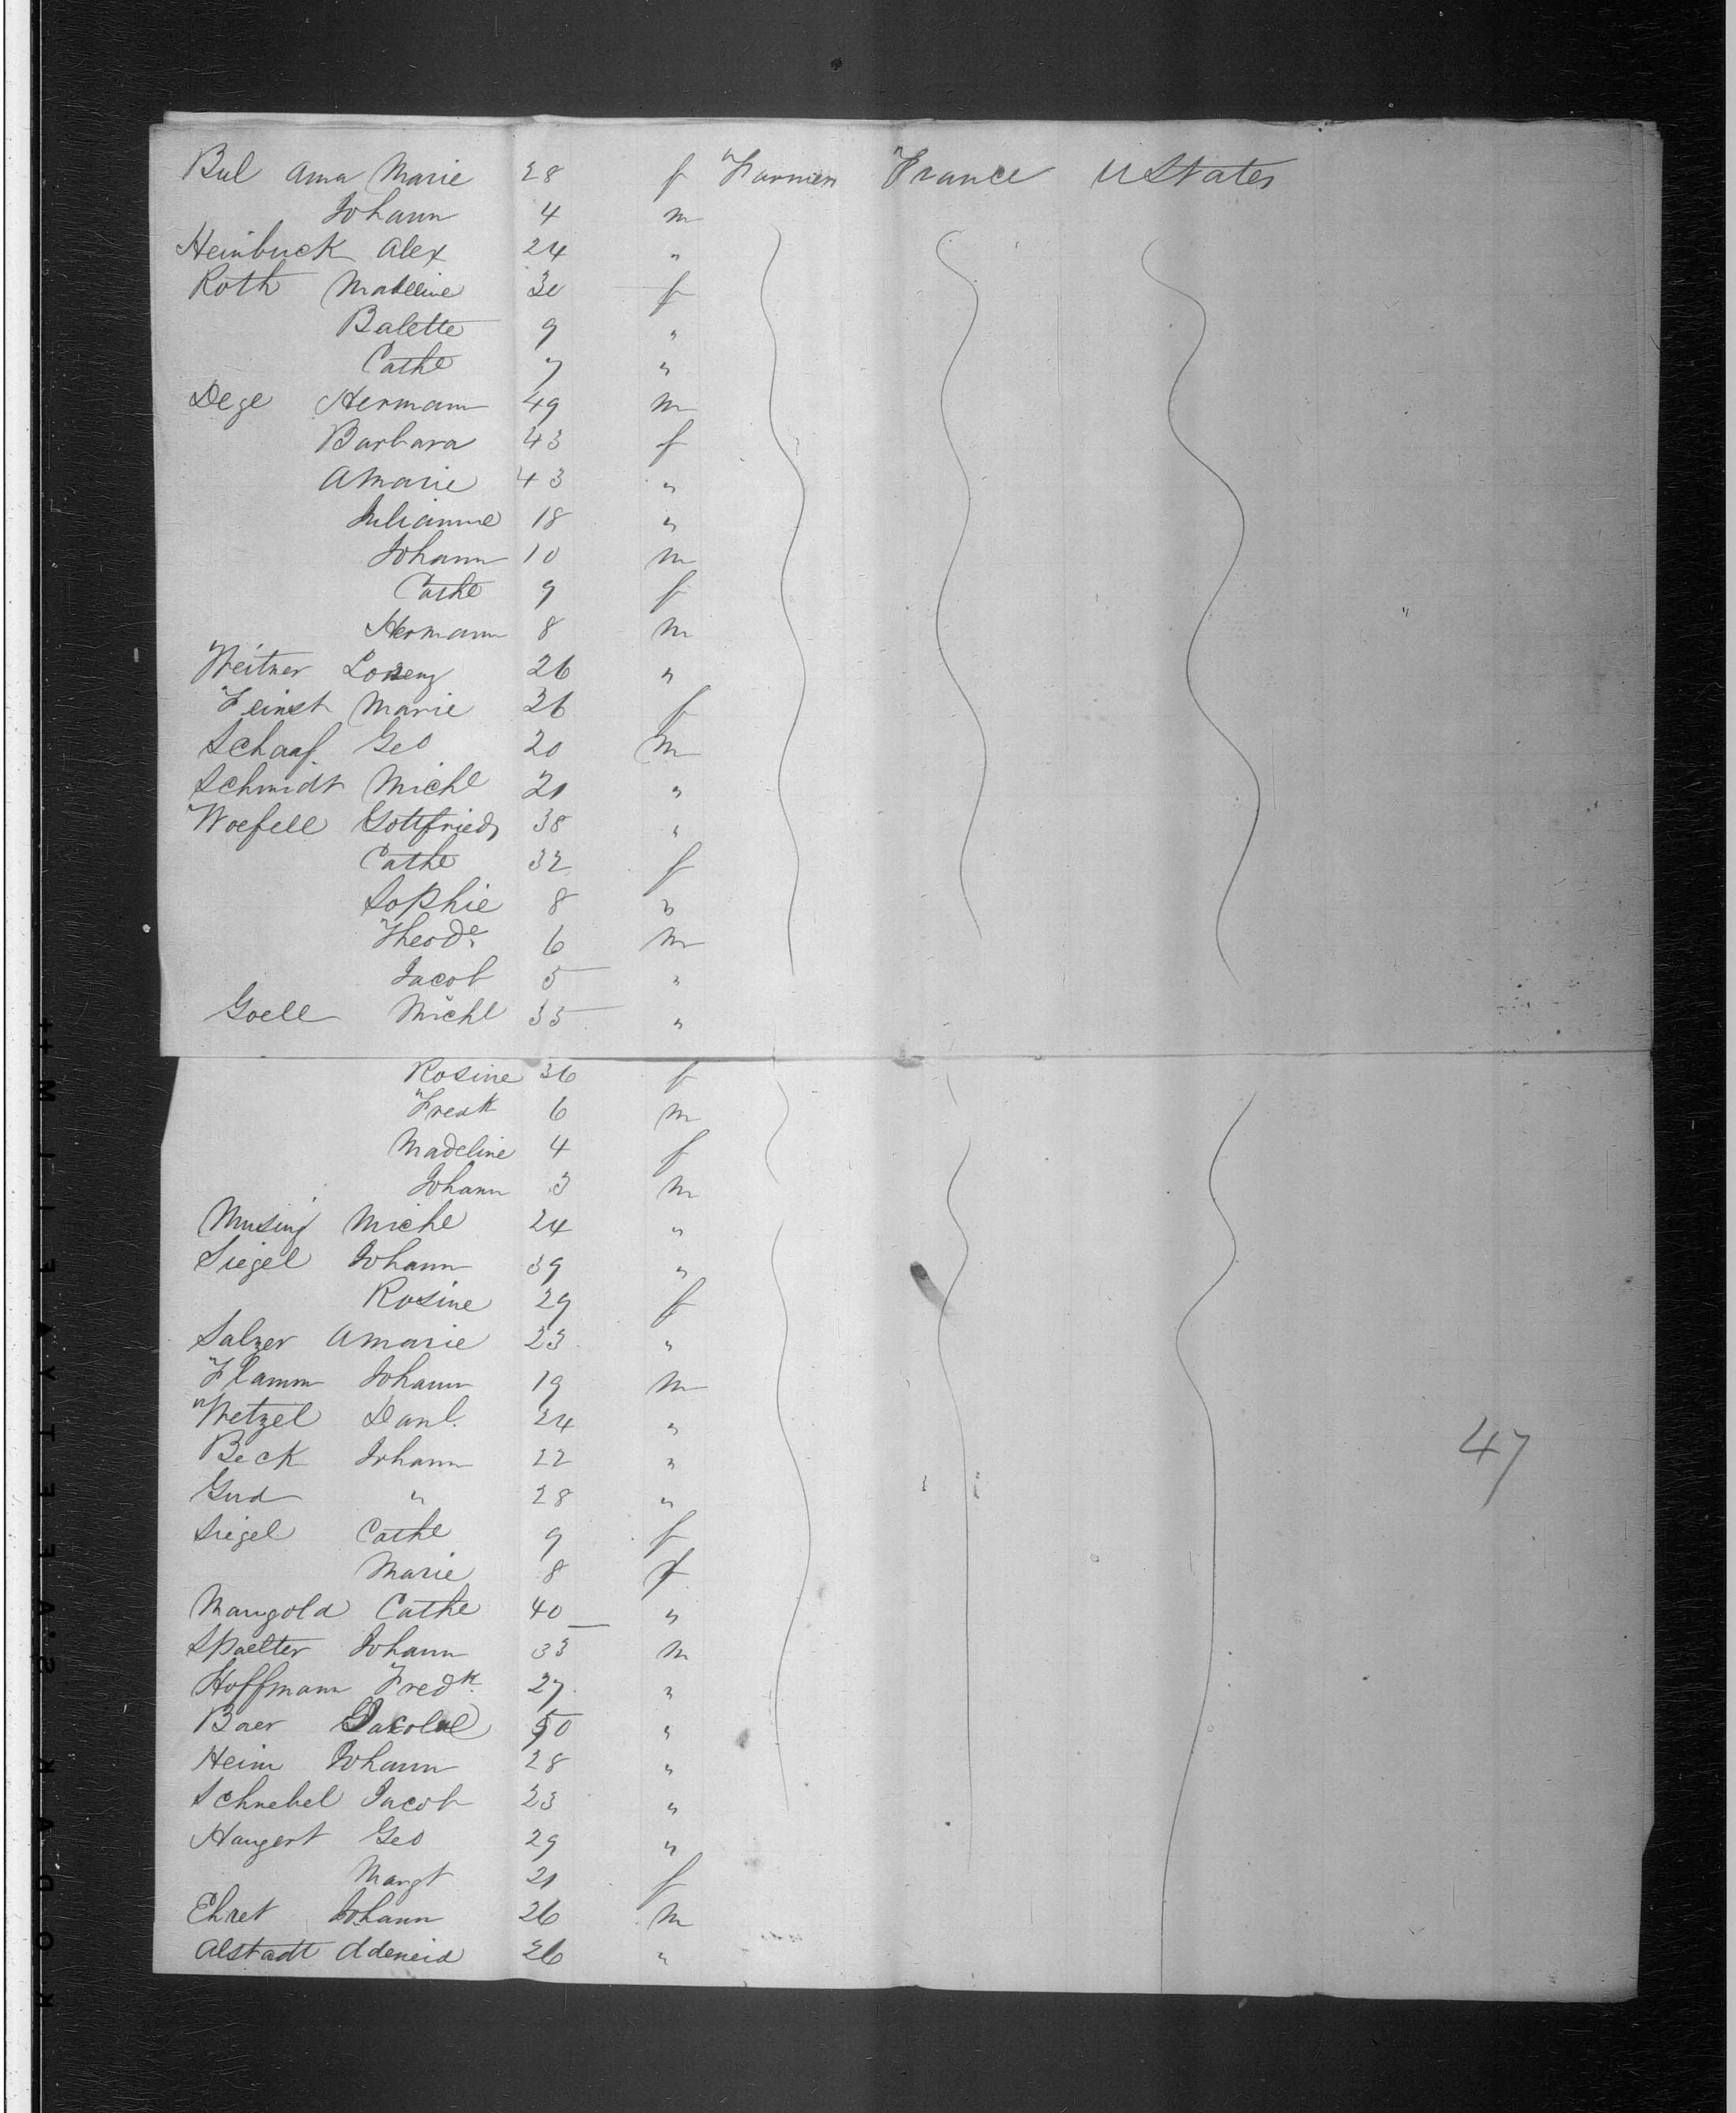 Bul Anna Marie 28 f Farmers France U States
Johann 4 m
Heinbuck Alex 24 "
Roth Madeline 30 f
Balette 9 "
Cathe 7 "
Dege Hermann 49 m
Barbara 43 f
A Marie 43 "
Julianne 18 "
Johann 10 m
Cathe 9 f
Hermann 8 m
Weitzer Lorenz 26 "
Feinst Marie 26 f
Schaaf Geo 20 m
Schmidt Michl 21 "
Woefell Gottfried 38 "
Cathe 32 f
Sophie 8 "
Theode 6 m
Jacob 5 "
Goell Michl 35 "
Rosine 36 f
Fredk 6 m
Madeline 4 f
Johann 3 m
Musing Michl 24 "
Siegel Johann 39 "
Rosine 29 f
Salzer A Marie 23 "
Flamm Johann 19 m
Wetzel Danl. 24 "
Beck Johann 22 "
Gud " 28 "
Siegel Cathe 9 f
Marie 8 f
Mangold Cathe 40 "
Spaelter Johann 33 m
Hoffmann Fredk. 27 "
Baer 50 "
Heim Johann 28 "
Schnebel Jacob 23 "
Haugert Geo 29 "
Margt 21 f
Ehret Johann 26 m
Alstadt 26 "
47